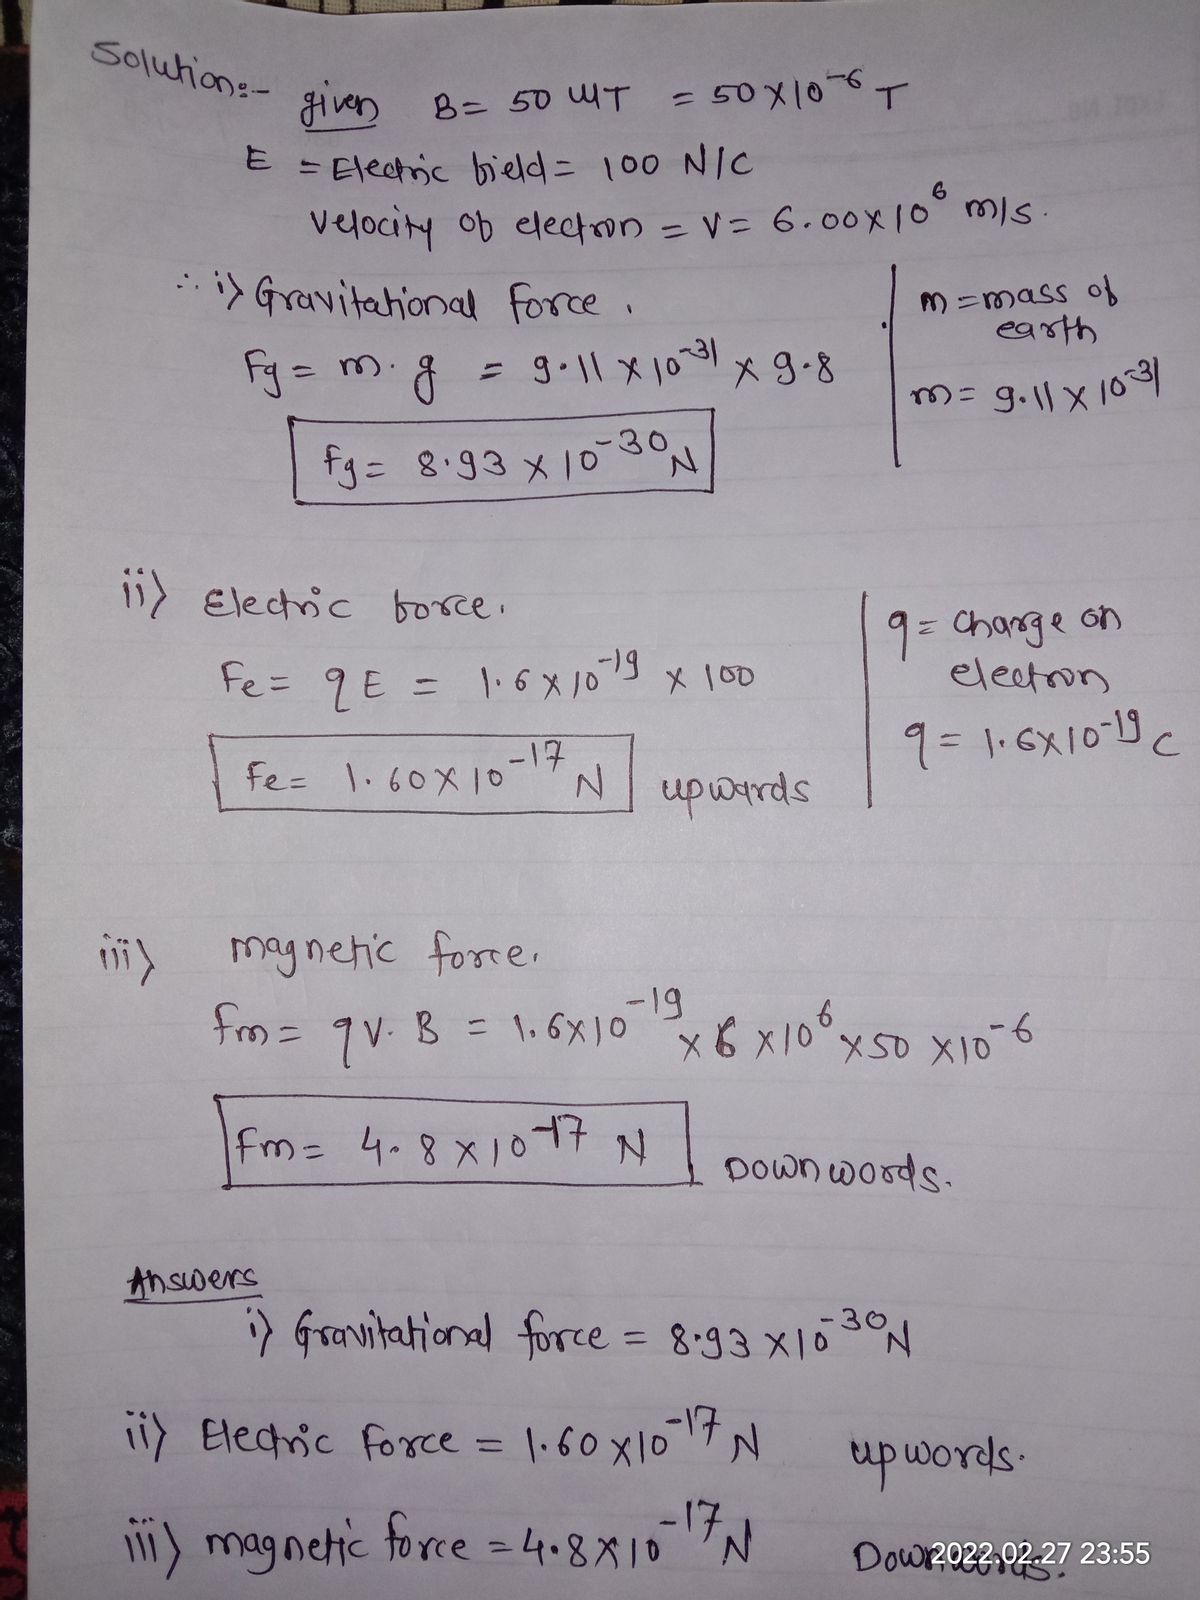 Solution:-
given B = 50 μT = 50 × 10⁻⁶ T
E = Electric field = 100 N/C
Velocity of electron = V = 6.00 × 10⁶ m/s.
∴ i) Gravitational Force.
Fg = m. g = 9.11 × 10⁻³¹ × 9.8
Fg = 8.93 × 10⁻³⁰ N
m = mass of
earth
m = 9.11 × 10⁻³¹
ii) Electric force.
Fe = qE = 1.6 × 10⁻¹⁹ × 100
Fe = 1.60 × 10⁻¹⁷ N upwards
q = charge on
electron
q = 1.6 × 10⁻¹⁹ C
iii) magnetic force.
Fm = qV. B = 1.6 × 10⁻¹⁹ × 6 × 10⁶ × 50 × 10⁻⁶
Fm = 4.8 × 10⁻¹⁷ N Downwords.
Answers
i) Gravitational force = 8.93 × 10⁻³⁰ N
ii) Electric Force = 1.60 × 10⁻¹⁷ N upwords.
iii) magnetic force = 4.8 × 10⁻¹⁷ N Downwords.
2022.02.27 23:55